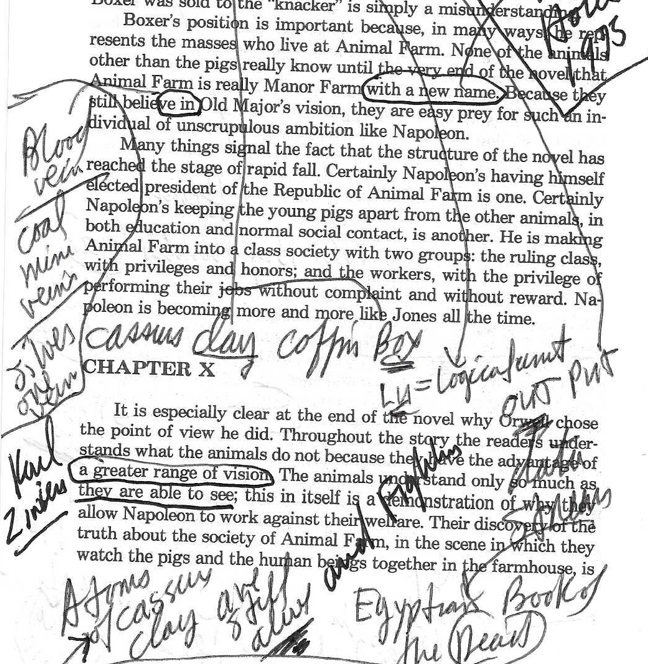 Boxer was sold to the "knacker" is simply a misunderstanding.
Boxer's position is important because, in many ways, he rep-
resents the masses who live at Animal Farm. None of the animals
other than the pigs really know until the very end of the novel that
Animal Farm is really Manor Farm with a new name. Because they
still believe in Old Major's vision, they are easy prey for such an in-
dividual of unscrupulous ambition like Napoleon.
Many things signal the fact that the structure of the novel has
reached the stage of rapid fall. Certainly Napoleon's having himself
elected president of the Republic of Animal Farm is one. Certainly
Napoleon's keeping the young pigs apart from the other animals, in
both education and normal social contact, is another. He is making
Animal Farm into a class society with two groups: the ruling class,
with privileges and honors; and the workers, with the privilege of
performing their jobs without complaint and without reward. Na-
poleon is becoming more and more like Jones all the time.
1993
Blood
vein
coal
mine
veins
vein
cassius clay coffin Box
LU = Logical unit
out put
CHAPTER X
It is especially clear at the end of the novel why Orwell chose
the point of view he did. Throughout the story the readers under-
stands what the animals do not because they have the advantage of
a greater range of vision. The animals understand only so much as
they are able to see; this in itself is a demonstration of why they
allow Napoleon to work against their welfare. Their discovery of the
truth about the society of Animal Farm, in the scene in which they
watch the pigs and the human beings together in the farmhouse, is
Karl
and
Atoms
of cassius
clay are
still
alive
Egyptian Book of
the Dead